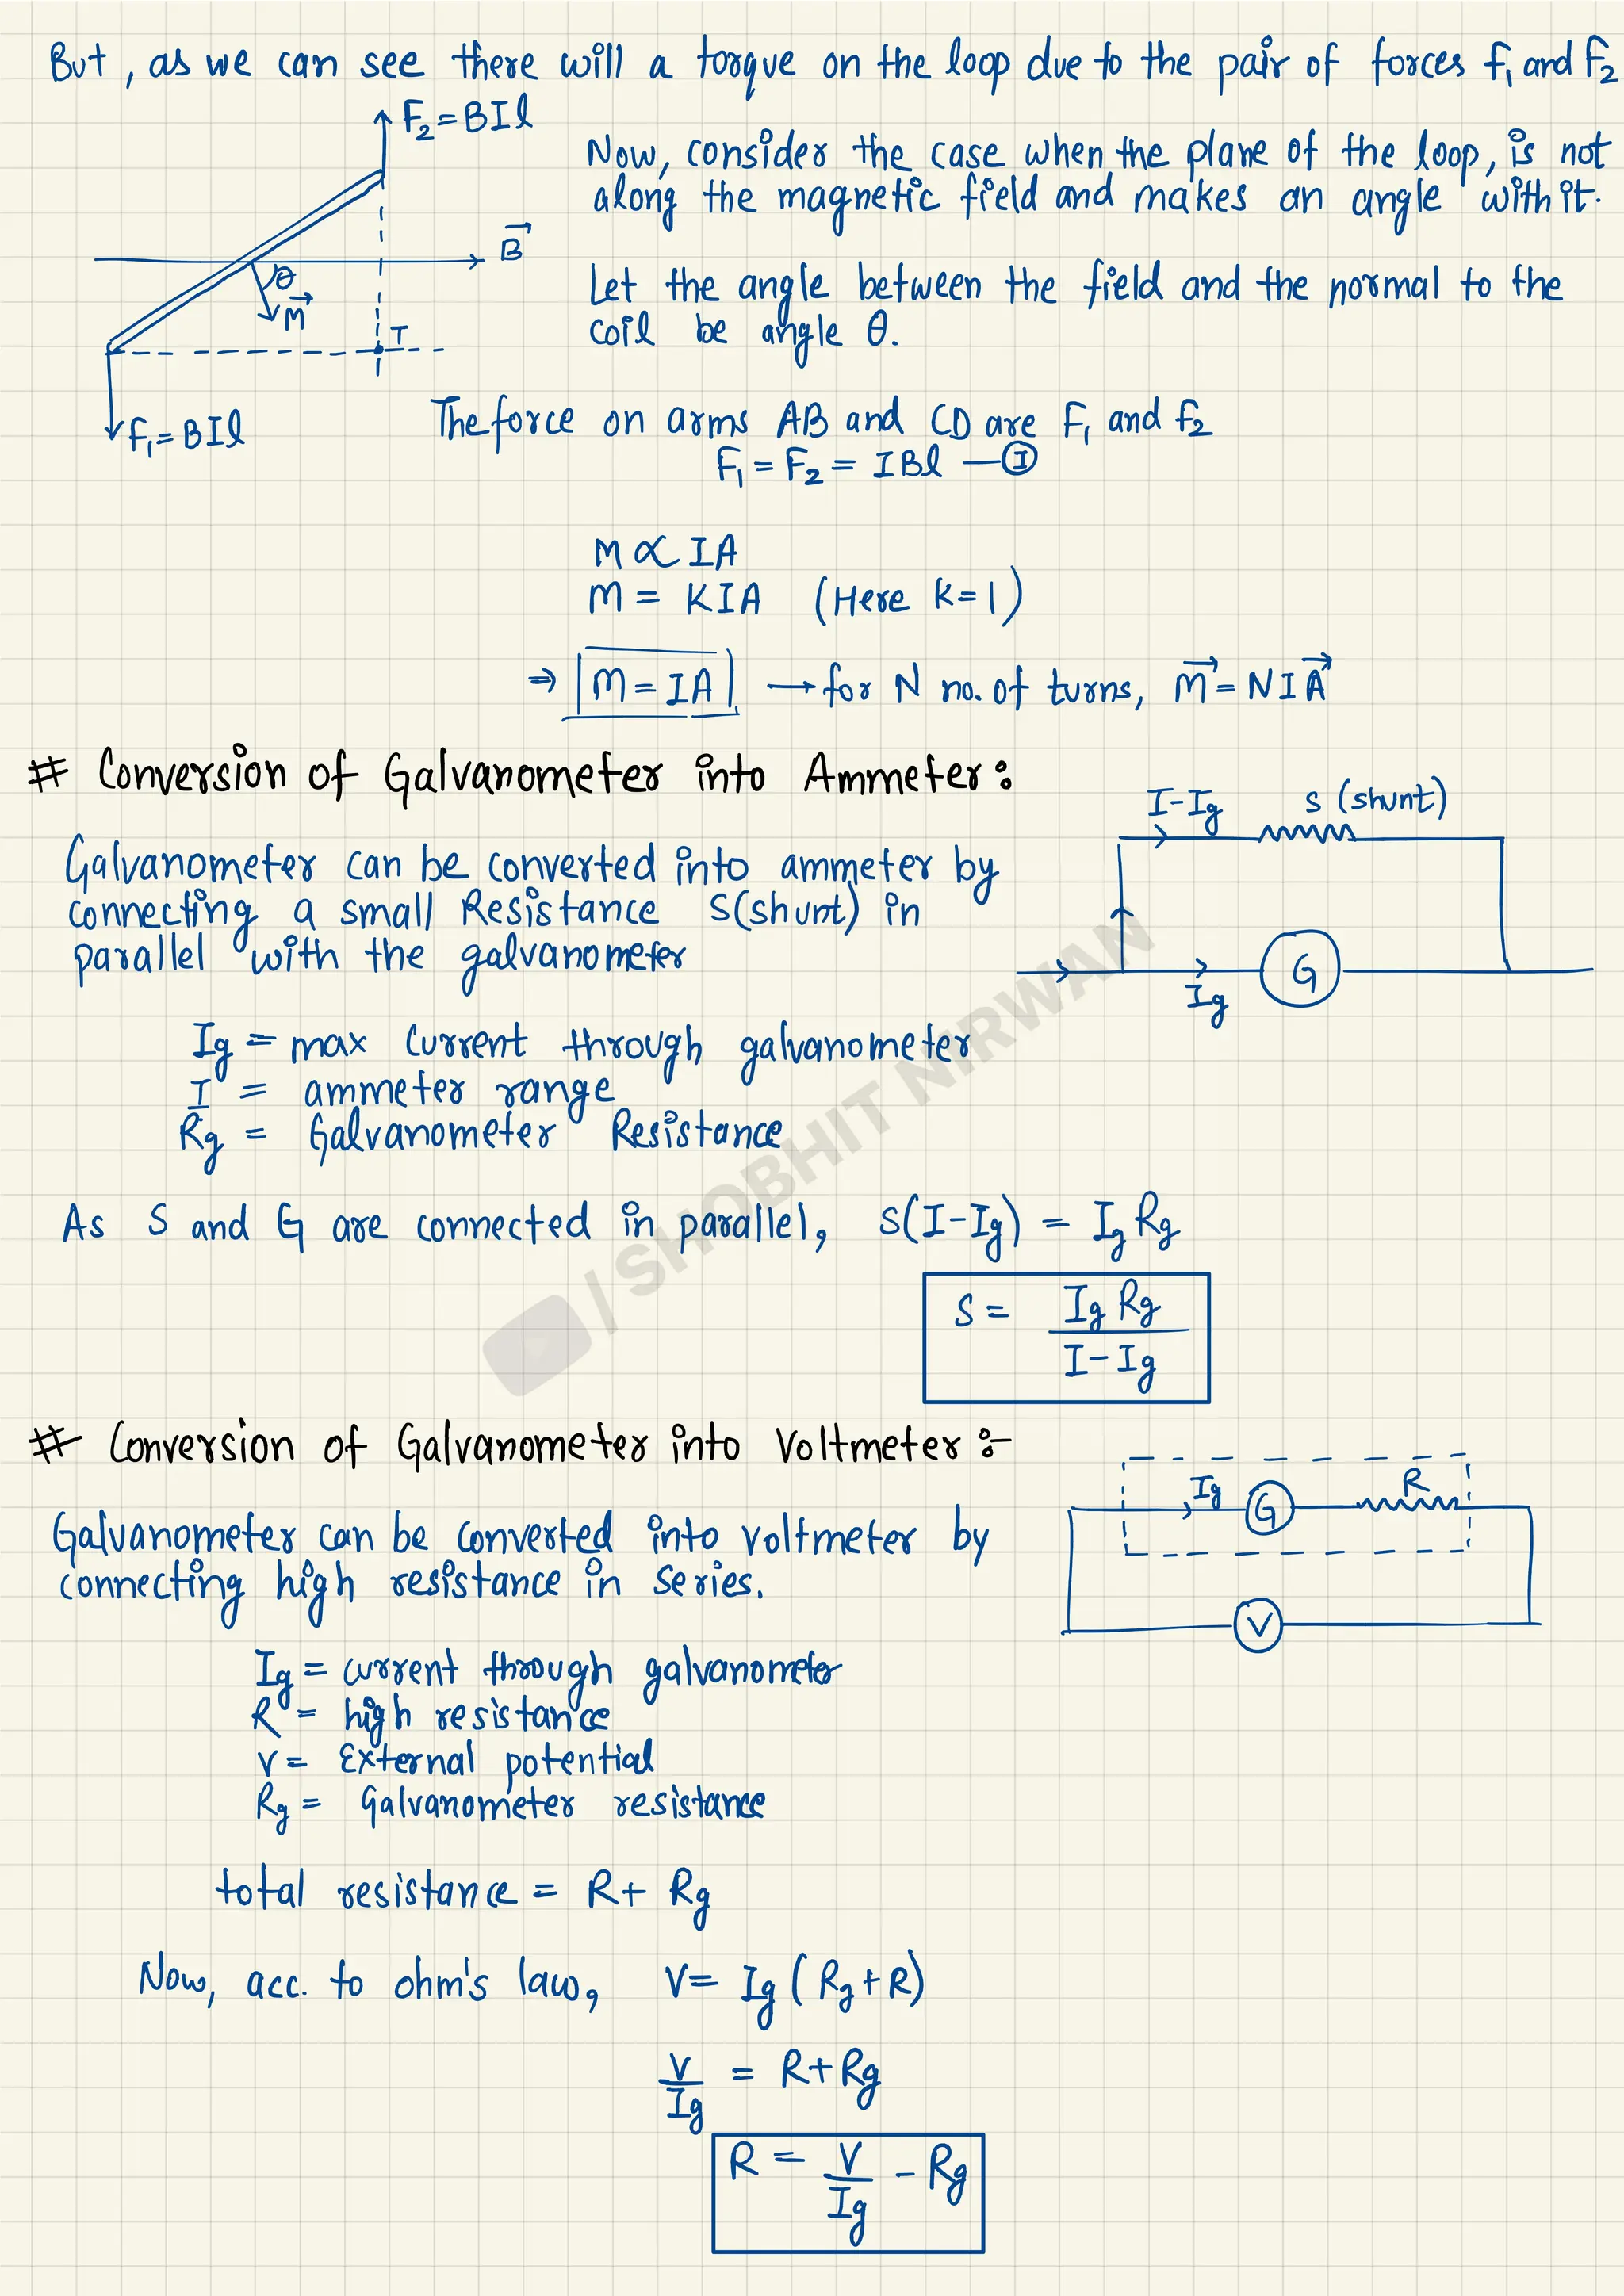 But, as we can see there will a torque on the loop due to the pair of forces F₁ and F₂
F₂ = BIl
Now, consider the case when the plane of the loop, is not
along the magnetic field and makes an angle with it.
B⃗
θ
M⃗
T
Let the angle between the field and the normal to the
coil be angle θ.
F₁ = BIl
The force on arms AB and CD are F₁ and F₂
F₁ = F₂ = IBl —Ⓘ
M ∝ IA
M = KIA (Here K=1)
⇒ M = IA → for N no. of turns, M⃗ = NIA⃗
# Conversion of Galvanometer into Ammeter:
I-Ig S (shunt)
Galvanometer can be converted into ammeter by
connecting a small Resistance S(shunt) in
parallel with the galvanometer
G
Ig
Ig = max current through galvanometer
I = ammeter range
Rg = Galvanometer Resistance
As S and G are connected in parallel, S(I-Ig) = Ig Rg
S = Ig Rg / I - Ig
/ SHOBHIT NIRWAN
# Conversion of Galvanometer into Voltmeter :-
Ig G R
V
Galvanometer can be converted into voltmeter by
connecting high resistance in series.
Ig = current through galvanometer
R = high resistance
V = External potential
Rg = Galvanometer resistance
total resistance = R + Rg
Now, acc. to ohm's law, V = Ig (Rg + R)
V/Ig = R + Rg
R = V/Ig - Rg